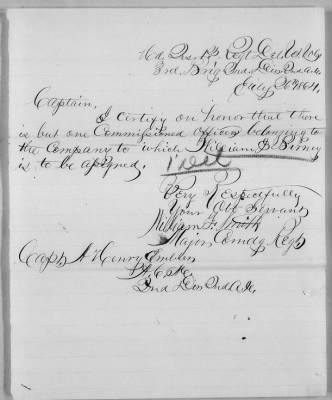 Hd Qrs 1st Regt Del Vols
3rd Brig 2nd Div 2nd A.C.
July 26th 1864,
Captain,
I certify on honor that there
is but one Commissioned officer belonging to
the Company to which William B. Birney
is to be assigned.
1 Del
Very Respectfully
Your Obt Servant
William F. Smith
Major Comdg Regt
Capt A Henry Embler
A.C.M.
2nd Div 2nd A.C.